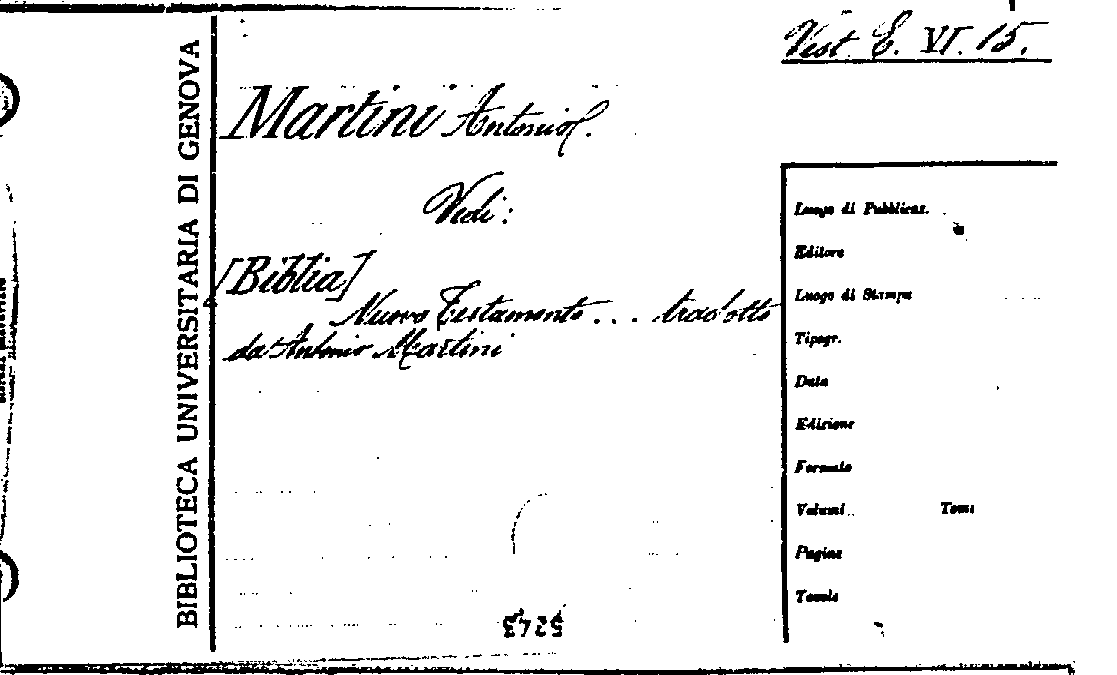 Vist. E. VI. 15.
BIBLIOTECA UNIVERSITARIA DI GENOVA
Martini Antonio.
Vedi:
[Biblia]
Nuovo Testamento ... tradotto
da Antonio Martini
Luogo di Pubblicaz.
Editore
Luogo di Stampa
Tipogr.
Data
Edizione
Formato
Volumi Tomi
Pagine
Tavole